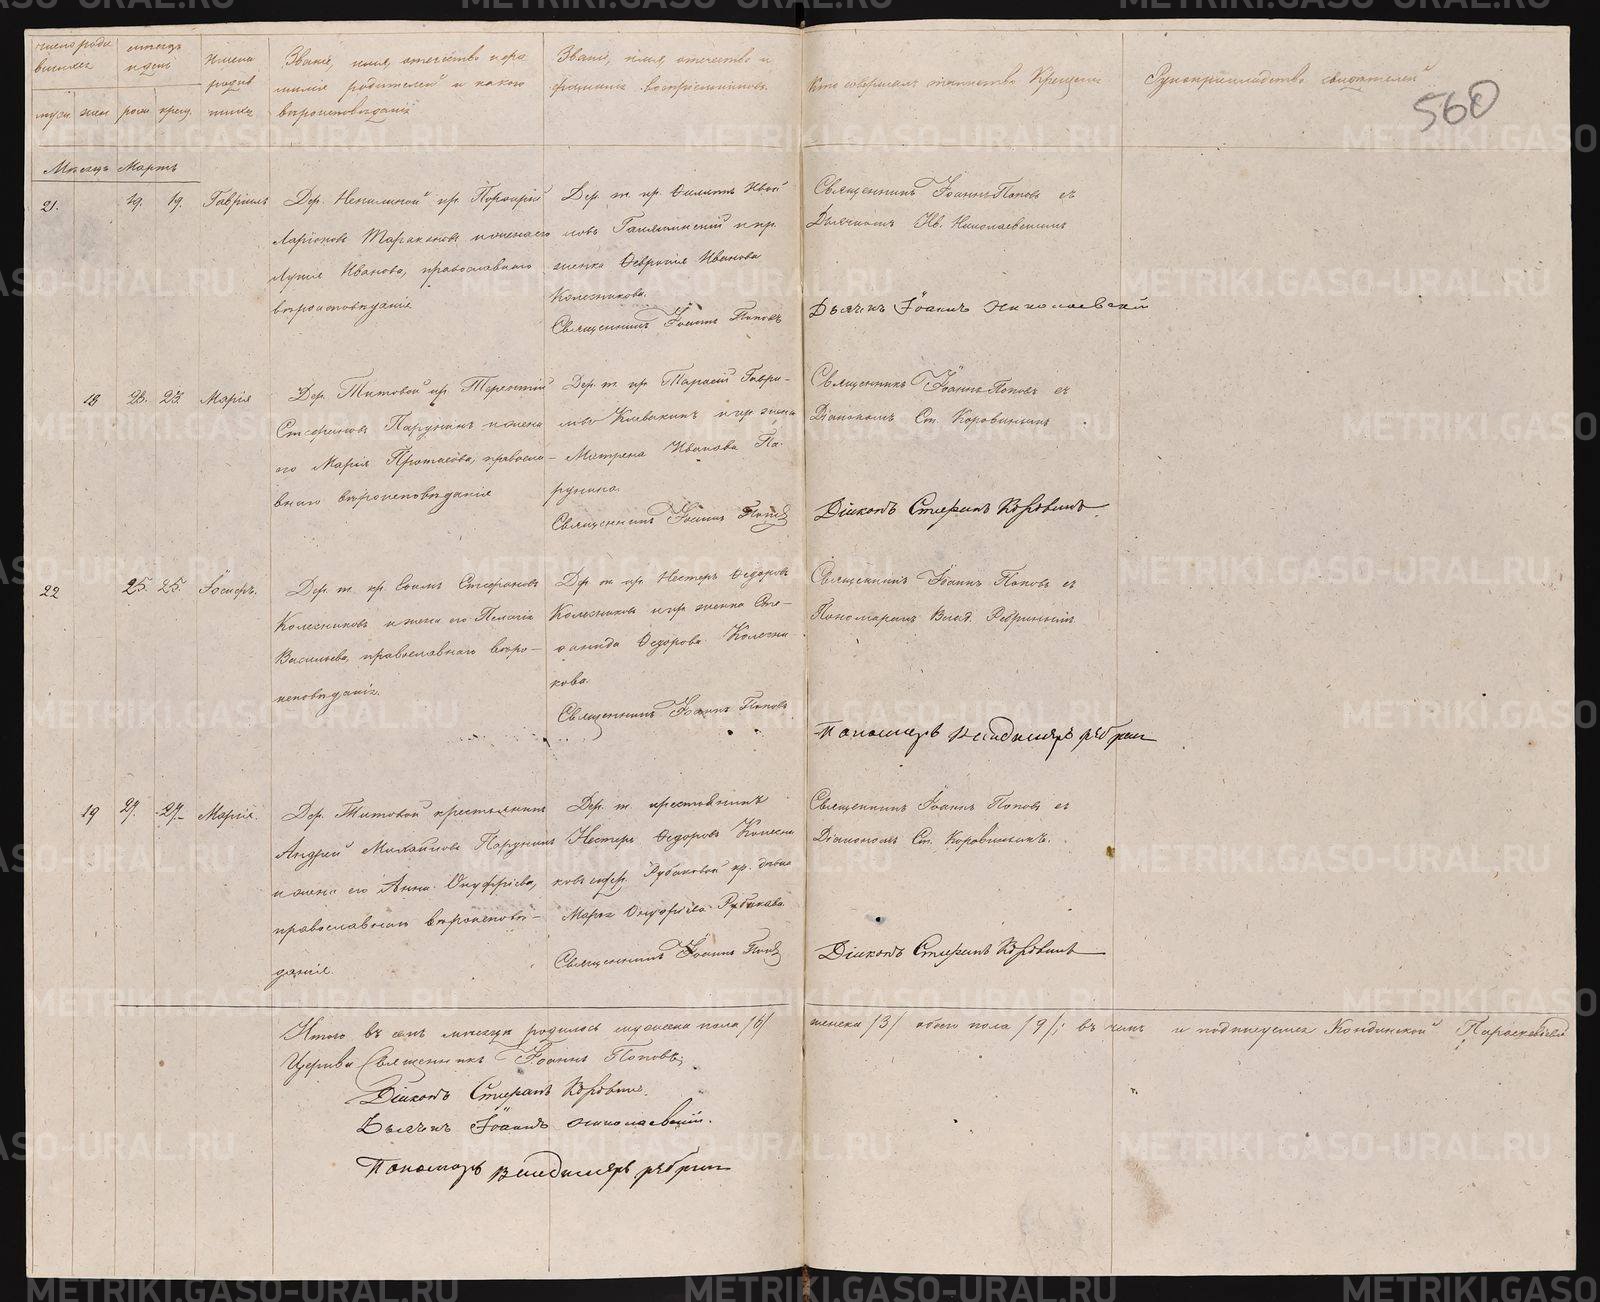 число родившихся
мужс. жен.
месяцъ и день
рожд. крещ.
Имена родившихся
Званіе, имя, отечество и фамилія родителей и какого вѣроисповѣданія
Званіе, имя, отечество и фамилія воспріемниковъ.
Кто совершалъ таинство Крещенія
Рукоприкладство свидѣтелей
560
Мѣсяцъ Мартъ
21.
19. 19. Гавріилъ
Дер. кр. Порфирій
Ларіоновъ Таракановъ и жена его
Иванова, православнаго
вѣроисповѣданія
Дер. т. кр. Филиппъ
и кр.
женка Февронія Иванова
Колесникова.
Священникъ Іоаннъ Поповъ
Священникъ Іоаннъ Поповъ съ
Дьячкомъ Ив. Николаевскимъ
Дьячекъ Іоаннъ Николаевскій
18 23. 23. Марія
Дер. Титовой кр. Терентій
Стефановъ Парунинъ и жена
его Марія Протасова, правосла-
внаго вѣроисповѣданія
Дер. т. кр. Тарасій Гаври-
ловъ Клевакинъ и кр. женка
Матрена Иванова Па-
рунина.
Священникъ Іоаннъ Поповъ
Священникъ Іоаннъ Поповъ съ
Діакономъ Ст. Коровинымъ
Діаконъ Стефанъ Коровинъ
22 25. 25. Іосифъ.
Дер. т. кр. Стефановъ
Колесниковъ и жена его Пелагія
Васильева, православнаго вѣро-
исповѣданія.
Дер. т. кр. Нестеръ Федоровъ
Колесниковъ и кр. женка Сте-
фанида Федорова Колесни-
кова.
Священникъ Іоаннъ Поповъ
Священникъ Іоаннъ Поповъ съ
Пономаремъ Влад. Ребринымъ
Пономарь Владимиръ Ребринъ
19 27. 27. Марія.
Дер. Титовой крестьянинъ
Андрей Михайловъ Парунинъ
и жена его Анна Онуфріева,
православнаго вѣроисповѣ-
данія.
Дер. т. крестьянинъ
Нестеръ Федоровъ Колесни-
ковъ и дер. Рубаковой кр. дѣвка
Марья Онуфріева Рубакова
Священникъ Іоаннъ Поповъ
Священникъ Іоаннъ Поповъ съ
Діакономъ Ст. Коровинымъ.
Діаконъ Стефанъ Коровинъ
Итого въ семъ мѣсяцѣ родилось мужеска пола /6/ женска /3/ обоего пола /9/; въ чемъ и подписуемся Кондинской Параскевіевской
Церкви Священникъ Іоаннъ Поповъ,
Діаконъ Стефанъ Коровинъ.
Дьячекъ Іоаннъ Николаевскій.
Пономарь Владимиръ Ребринъ
METRIKI.GASO-URAL.RU